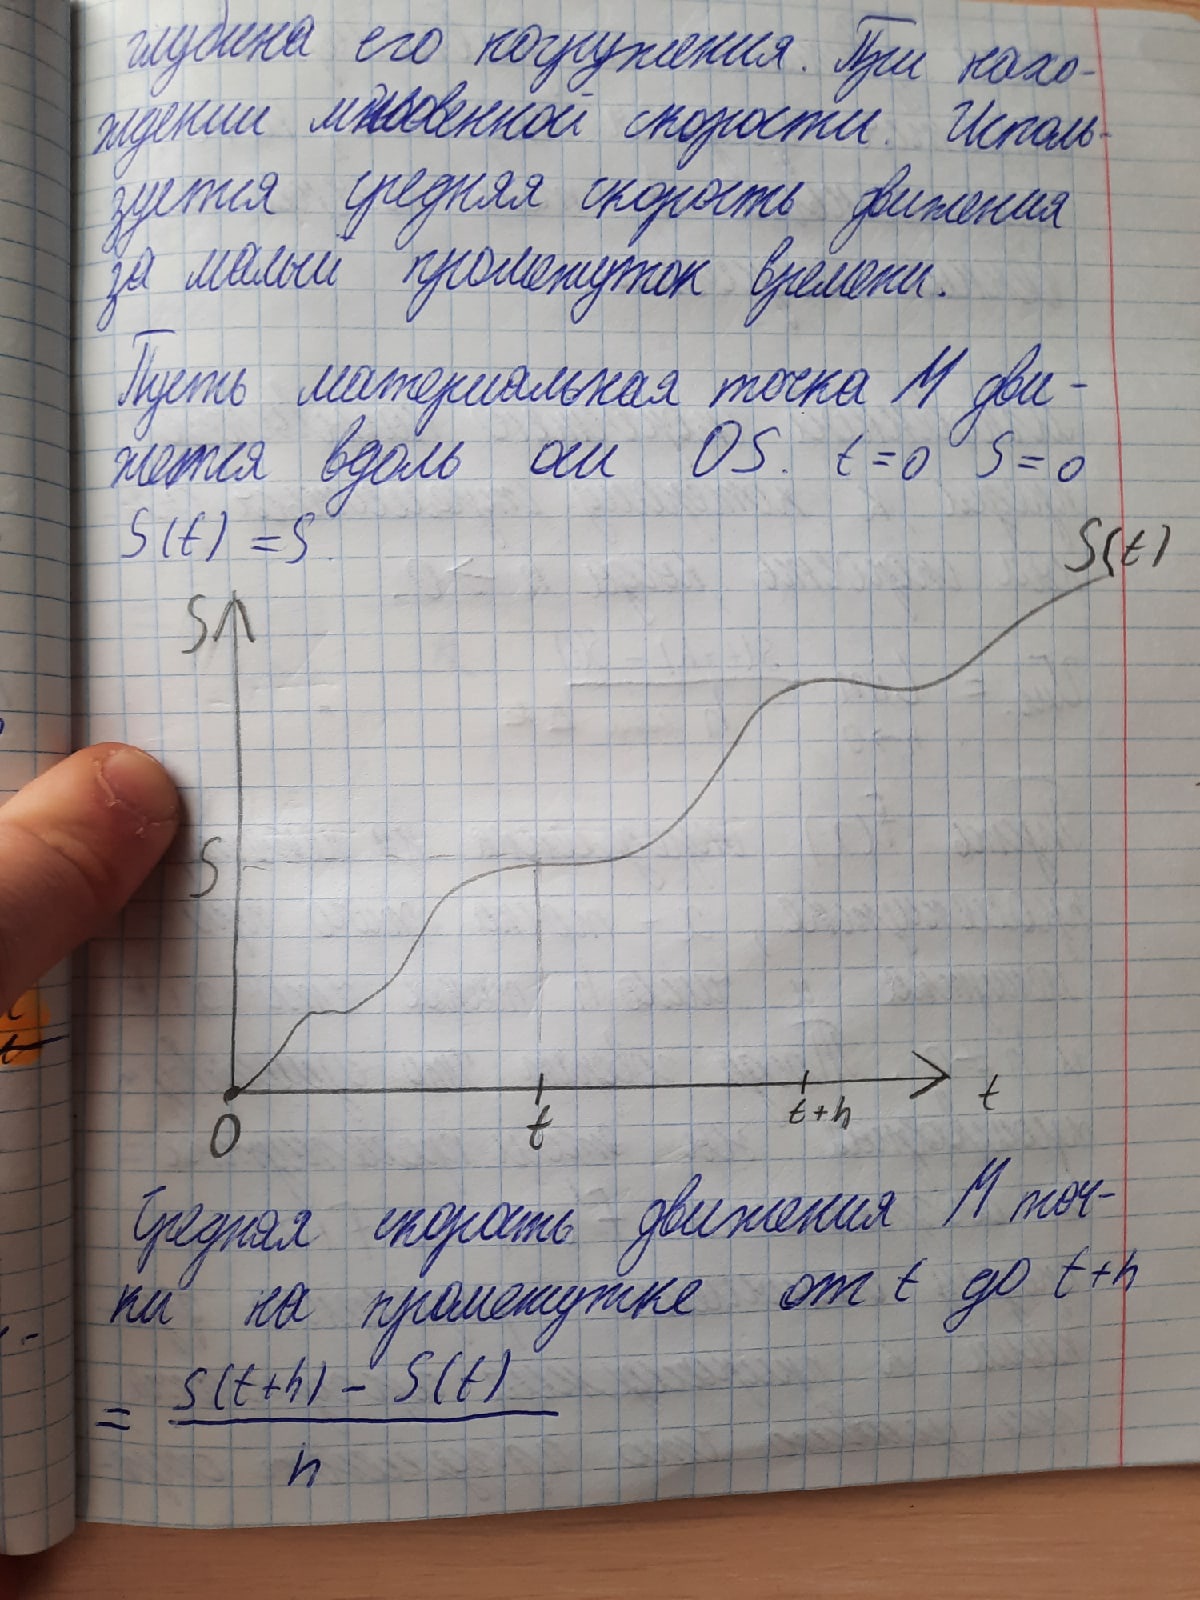 глубина его погружения. При нахо-
ждении мгновенной скорости. Исполь-
зуется средняя скорость движения
за малый промежуток времени.
Пусть материальная точка М дви-
жется вдоль оси OS. t=0 S=0
S(t)=S
S(t)
S
S
0
t
t+h
t
Средняя скорость движения М точ-
ки на промежутке от t до t+h
= S(t+h) - S(t)
h